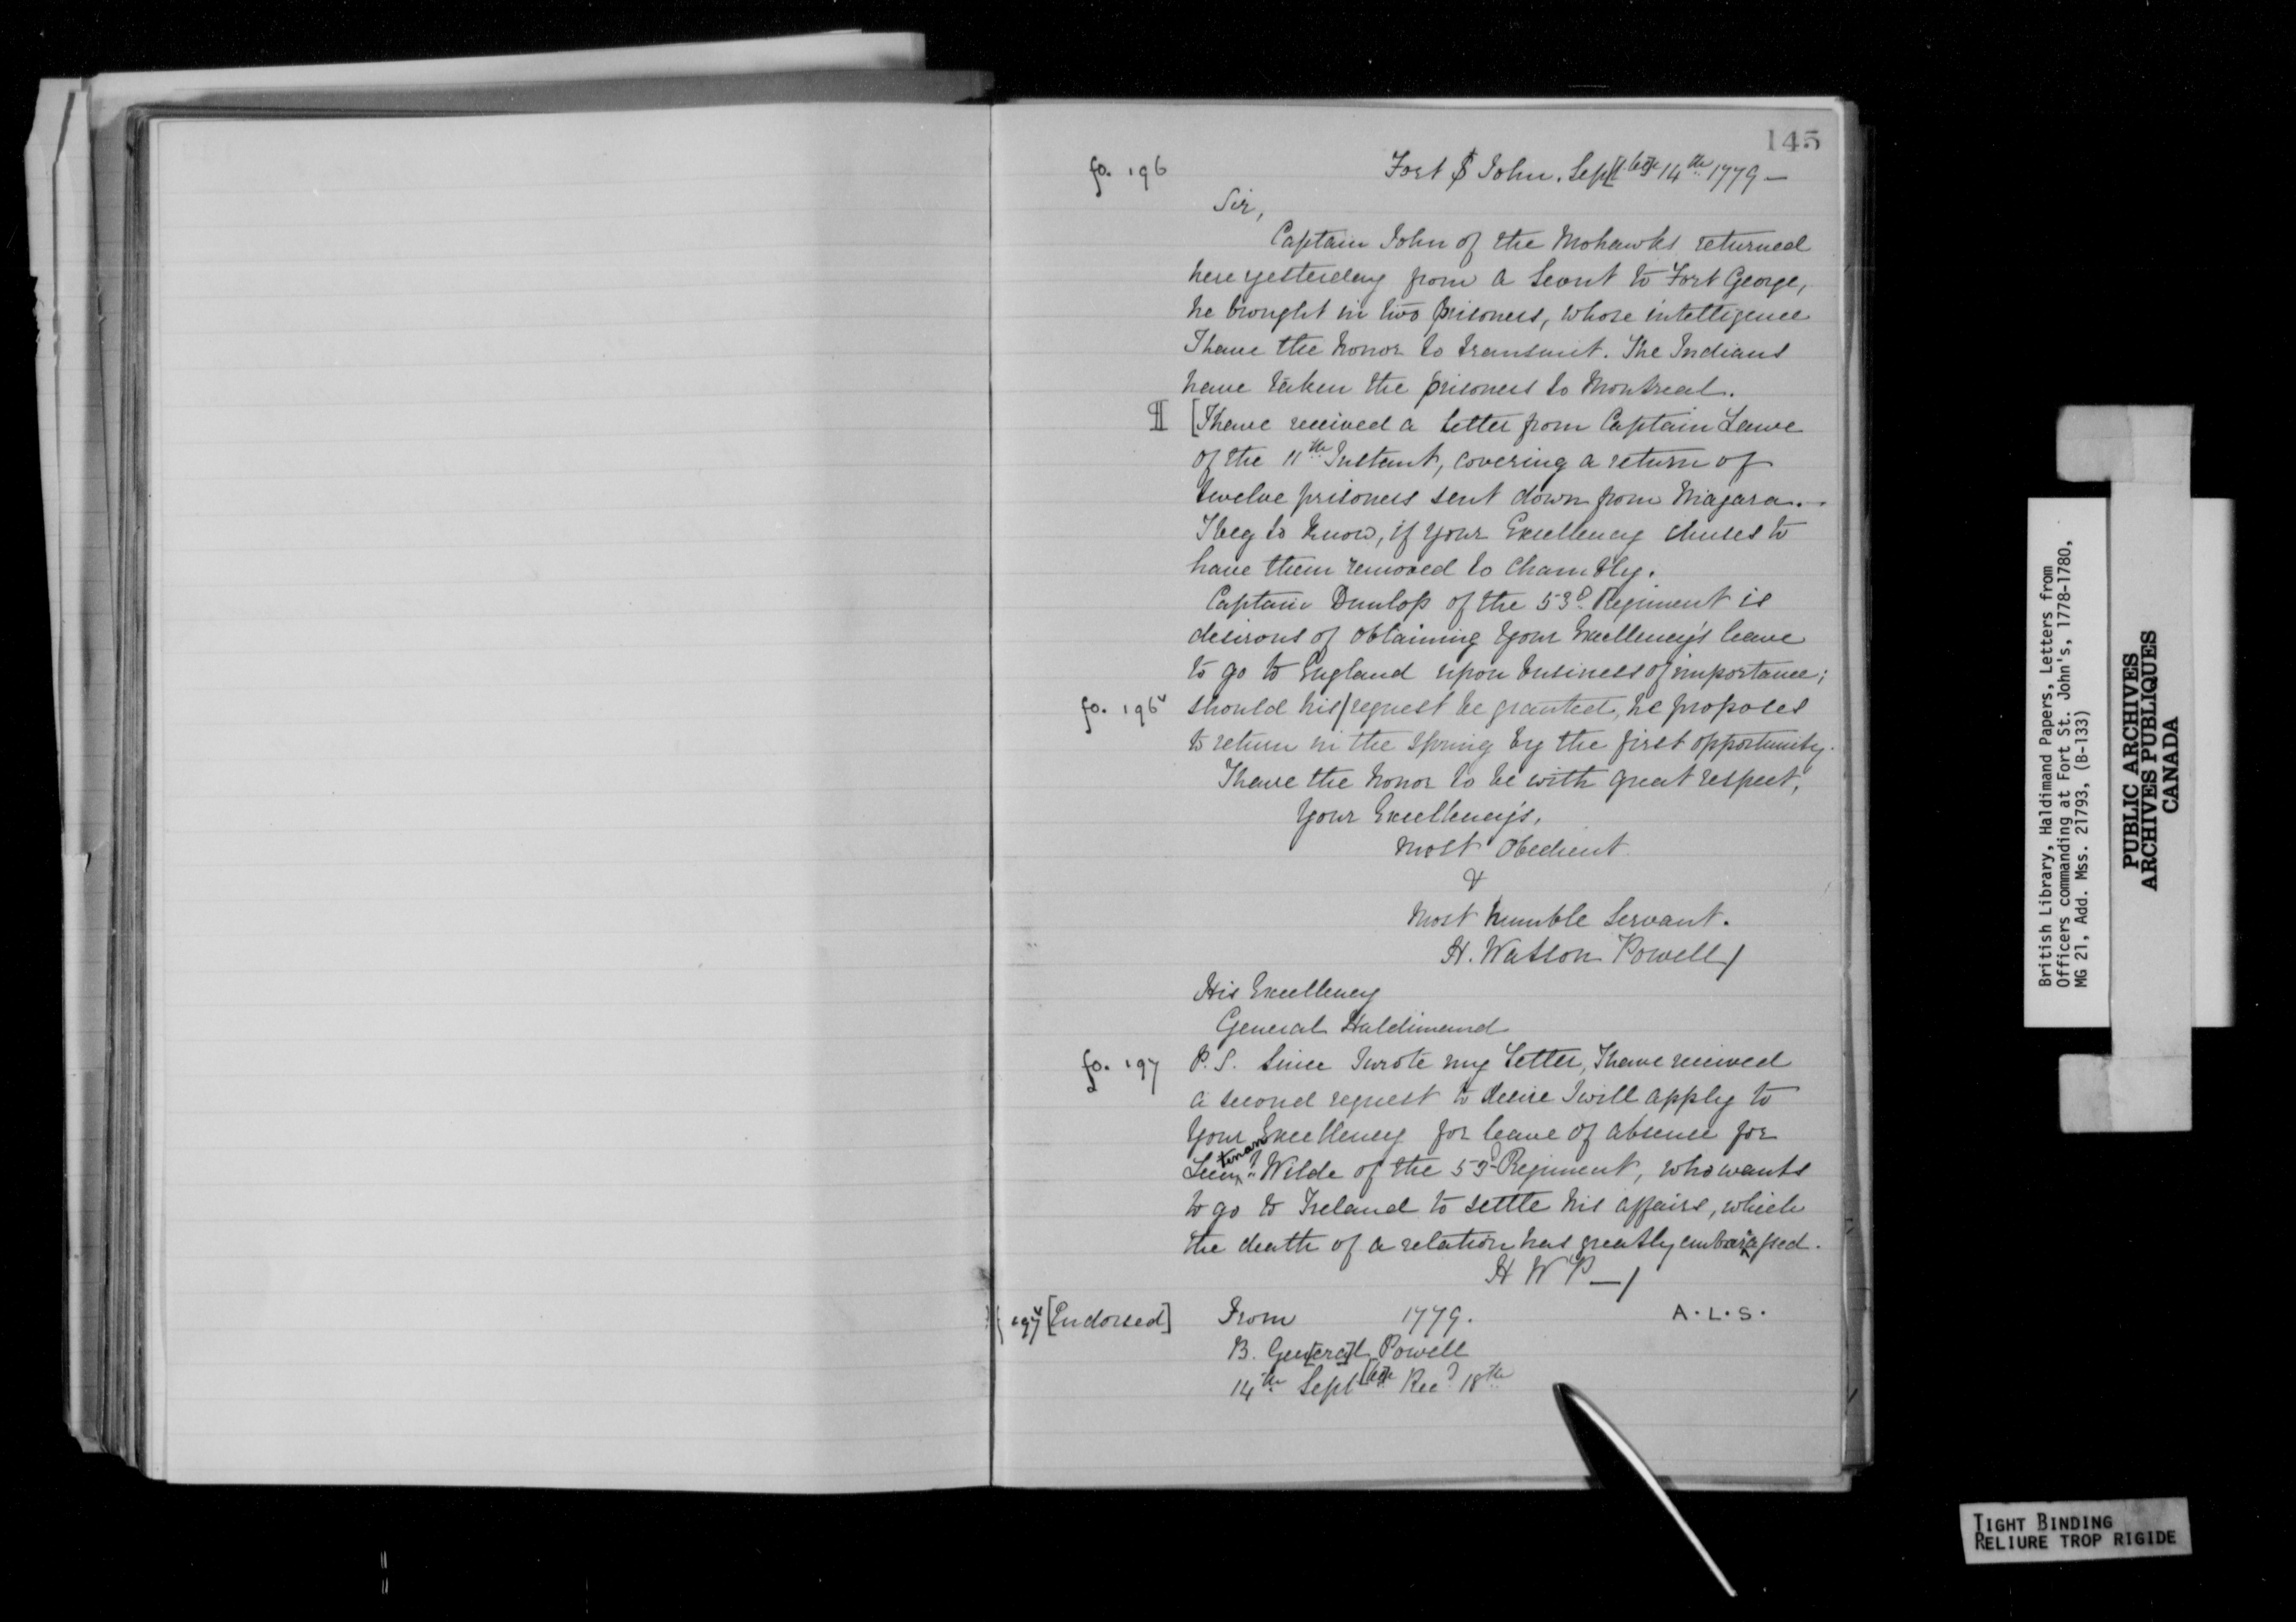 145
fo. 196
Fort St John. Sept[ber] 14th 1779 —
Sir,
Captain John of the Mohawks returned
here yesterday from a Scout to Fort George,
he brought in two prisoners, whose intelligence
I have the honor to transmit. The Indians
have taken the prisoners to Montreal.
¶ [I have received a letter from Captain Lawe
of the 11th Instant, covering a return of
twelve prisoners sent down from Niagara. –
I beg to know, if your Excellency chuses to
have them removed to Chambly.
Captain Dunlop of the 53d Regiment is
desirous of obtaining Your Excellency's leave
to go to England upon business of importance;
fo. 196v should his/request be granted, he proposes
to return in the Spring by the first opportunity.
I have the honor to be with great respect,
Your Excellency's,
Most Obedient
&
Most humble Servant.
H. Watson Powell/
His Excellency
General Haldimand
fo. 197 P.S. Since I wrote my Letter, I have received
a second request to desire I will apply to
Your Excellency for leave of absence for
Lieutenant Wilde of the 53d Regiment, who wants
to go to Ireland to settle his affairs, which
the death of a relation has greatly embarrassed.
H W P — /
197v [Endorsed] From 1779. A.L.S.
B. Gen[era]l Powell
14th Sept[ber] Recd 18th
British Library, Haldimand Papers, Letters from
Officers commanding at Fort St. John's, 1778-1780,
MG 21, Add. Mss. 21793, (B-133)
PUBLIC ARCHIVES
ARCHIVES PUBLIQUES
CANADA
TIGHT BINDING
RELIURE TROP RIGIDE